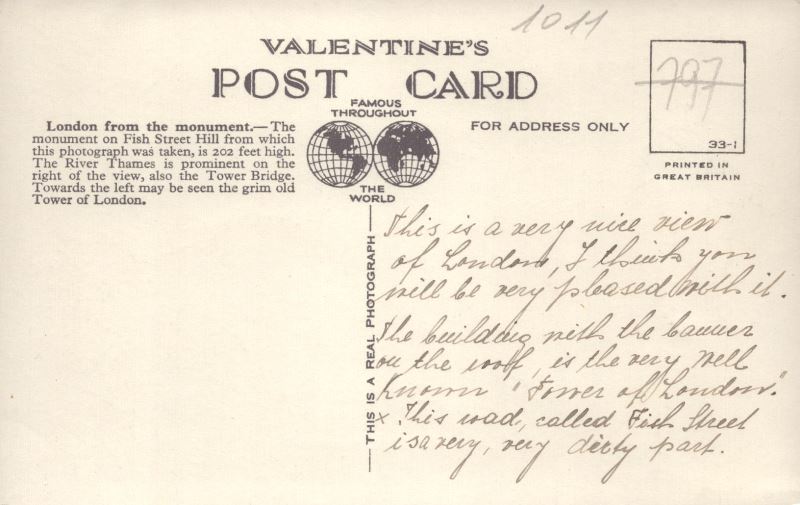 1011
VALENTINE'S
POST CARD
FAMOUS
THROUGHOUT
THE
WORLD
London from the monument.—The
monument on Fish Street Hill from which
this photograph was taken, is 202 feet high.
The River Thames is prominent on the
right of the view, also the Tower Bridge.
Towards the left may be seen the grim old
Tower of London.
FOR ADDRESS ONLY
797
33-1
PRINTED IN
GREAT BRITAIN
THIS IS A REAL PHOTOGRAPH
This is a very nice view
of London, I think you
will be very pleased with it.
The building with the banner
on the roof, is the very well
known "Tower of London."
x This road, called Fish Street
is a very, very dirty part.